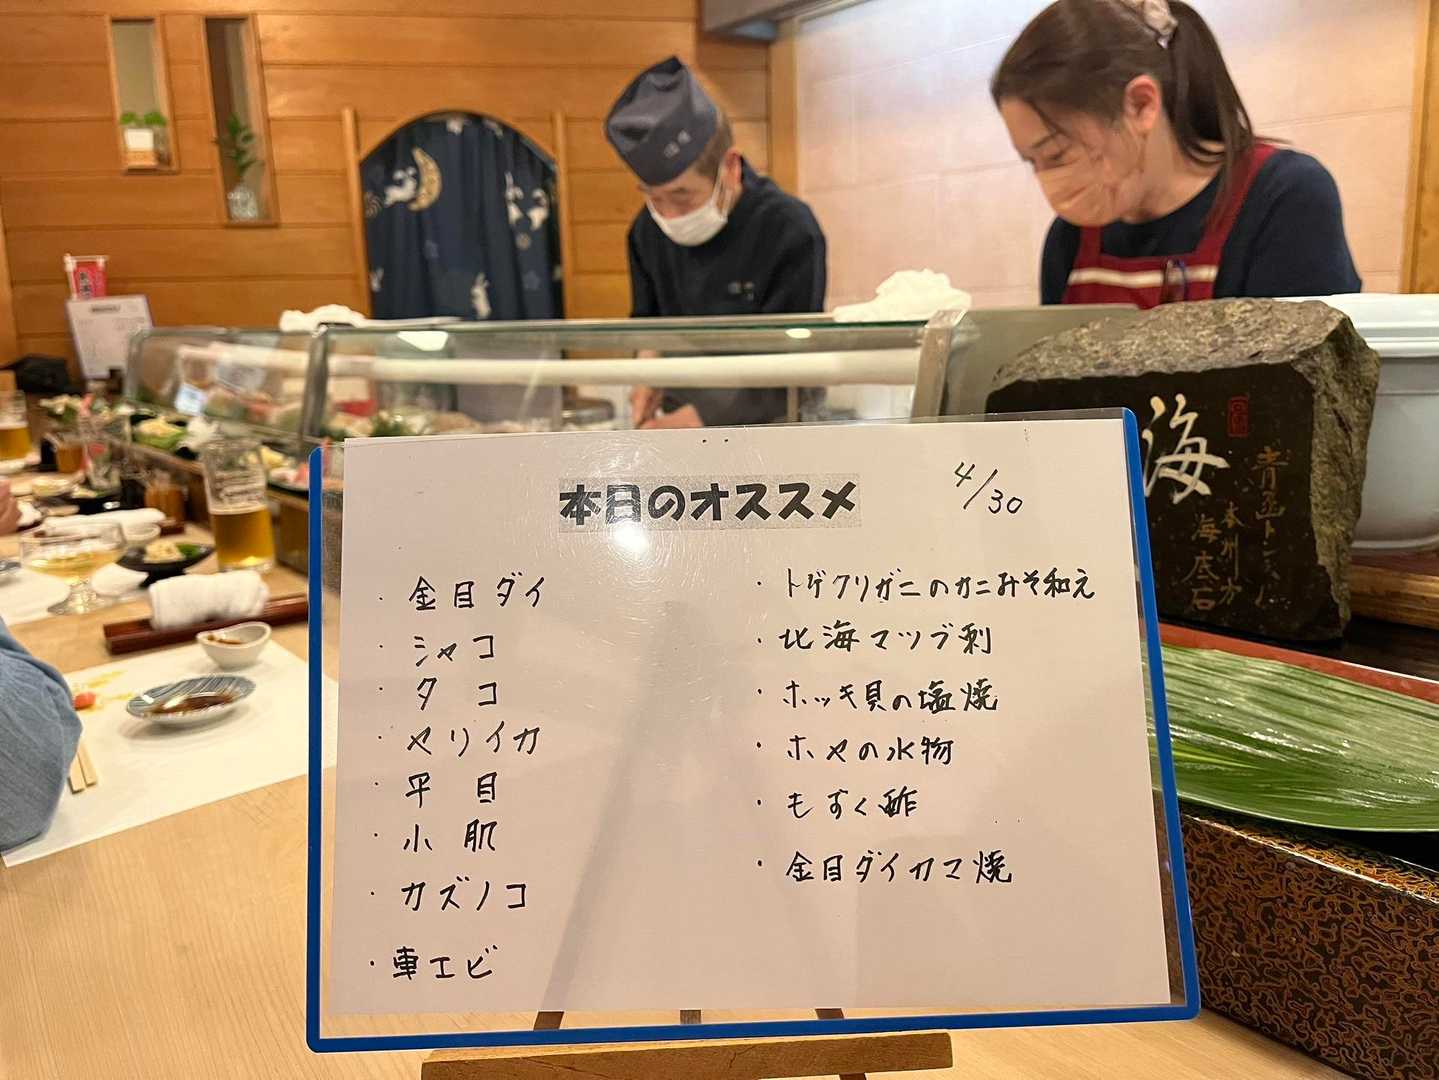 本日のオススメ
4/30
・金目ダイ
・シャコ
・タコ
・ヤリイカ
・平目
・小肌
・カズノコ
・車エビ
・トゲクリガニのカニみそ和え
・北海マツブ刺
・ホッキ貝の塩焼
・ホヤの水物
・もずく酢
・金目ダイカマ焼
海
青函トンネル
本州方
海底石